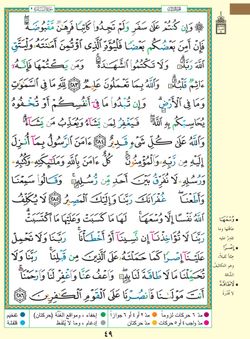 ۞ وَإِن كُنتُمْ عَلَىٰ سَفَرٍ وَلَمْ تَجِدُوا۟ كَاتِبًا فَرِهَـٰنٌ مَّقْبُوضَةٌ ۖ
فَإِنْ أَمِنَ بَعْضُكُم بَعْضًا فَلْيُؤَدِّ ٱلَّذِى ٱؤْتُمِنَ أَمَـٰنَتَهُۥ وَلْيَتَّقِ
ٱللَّهَ رَبَّهُۥ ۗ وَلَا تَكْتُمُوا۟ ٱلشَّهَـٰدَةَ ۚ وَمَن يَكْتُمْهَا فَإِنَّهُۥٓ
ءَاثِمٌ قَلْبُهُۥ ۗ وَٱللَّهُ بِمَا تَعْمَلُونَ عَلِيمٌ ٢٨٣ لِّلَّهِ مَا فِى ٱلسَّمَـٰوَٰتِ
وَمَا فِى ٱلْأَرْضِ ۗ وَإِن تُبْدُوا۟ مَا فِىٓ أَنفُسِكُمْ أَوْ تُخْفُوهُ
يُحَاسِبْكُم بِهِ ٱللَّهُ ۖ فَيَغْفِرُ لِمَن يَشَآءُ وَيُعَذِّبُ مَن يَشَآءُ ۗ
وَٱللَّهُ عَلَىٰ كُلِّ شَىْءٍ قَدِيرٌ ٢٨٤ ءَامَنَ ٱلرَّسُولُ بِمَآ أُنزِلَ
إِلَيْهِ مِن رَّبِّهِۦ وَٱلْمُؤْمِنُونَ ۚ كُلٌّ ءَامَنَ بِٱللَّهِ وَمَلَـٰٓئِكَتِهِۦ وَكُتُبِهِۦ
وَرُسُلِهِۦ لَا نُفَرِّقُ بَيْنَ أَحَدٍ مِّن رُّسُلِهِۦ ۚ وَقَالُوا۟ سَمِعْنَا
وَأَطَعْنَا ۖ غُفْرَانَكَ رَبَّنَا وَإِلَيْكَ ٱلْمَصِيرُ ٢٨٥ لَا يُكَلِّفُ
ٱللَّهُ نَفْسًا إِلَّا وُسْعَهَا ۚ لَهَا مَا كَسَبَتْ وَعَلَيْهَا مَا ٱكْتَسَبَتْ ۗ
رَبَّنَا لَا تُؤَاخِذْنَآ إِن نَّسِينَآ أَوْ أَخْطَأْنَا ۚ رَبَّنَا وَلَا تَحْمِلْ
عَلَيْنَآ إِصْرًا كَمَا حَمَلْتَهُۥ عَلَى ٱلَّذِينَ مِن قَبْلِنَا ۚ رَبَّنَا وَلَا
تُحَمِّلْنَا مَا لَا طَاقَةَ لَنَا بِهِۦ ۖ وَٱعْفُ عَنَّا وَٱغْفِرْ لَنَا وَٱرْحَمْنَآ ۚ
أَنتَ مَوْلَىٰنَا فَٱنصُرْنَا عَلَى ٱلْقَوْمِ ٱلْكَـٰفِرِينَ ٢٨٦
وُسْعَهَا
إِصْرًا
لَا طَاقَةَ
٤٩